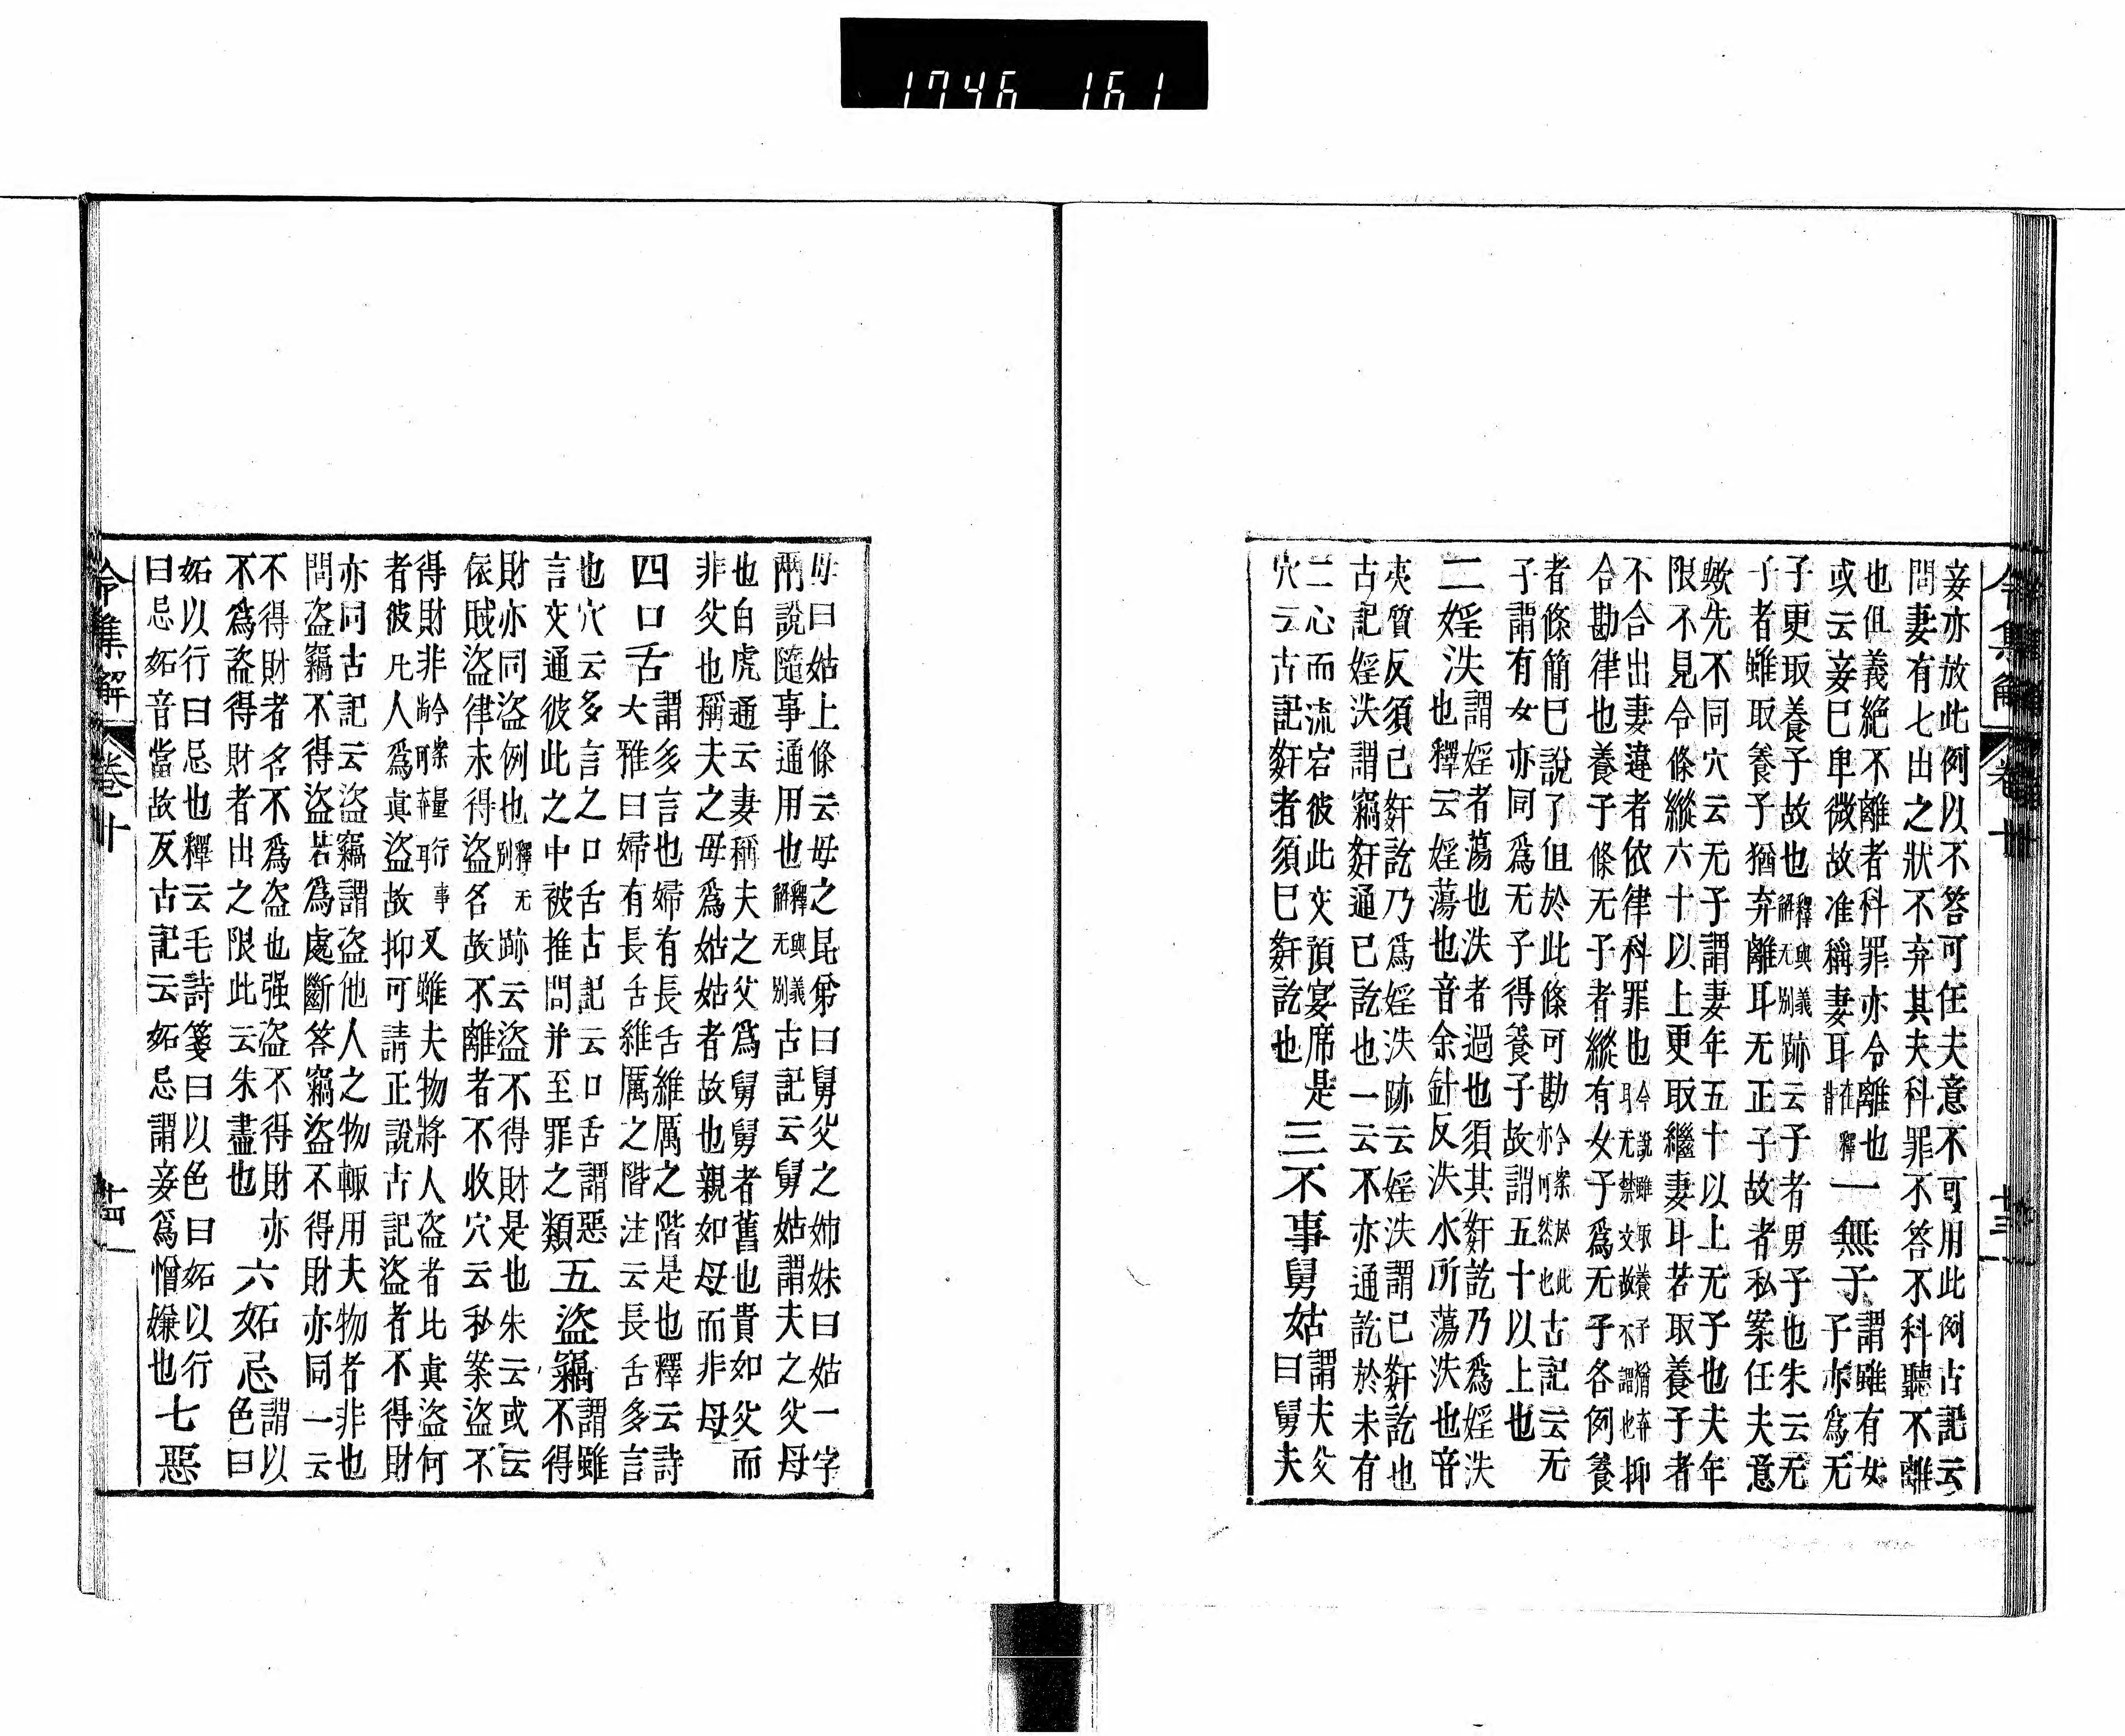 1746 161
令集解 卷十 十三
妾亦放此例以不答可任夫意不可用此例古記云
問妻有七出之狀不弃其夫科罪不答不科聽不離
也但義絶不離者科罪亦令離也
或云妾已卑微故准稱妻耳在釋背
一無子謂雖有女
子亦爲无
子更取養子故也釋與義解无別跡云子者男子也朱云无
子者雖取養子猶弃離耳无正子故者私案任夫意
歟先不同穴云无子謂妻年五十以上无子也夫年
限不見令條縱六十以上更取繼妻耳若取養子者
不合出妻違者依律科罪也今說雖取養子猶弃耳无禁文故不謂也抑
合勘律也養子條无子者縱有女子爲无子各例養
者條簡已說了但於此條可勘今案於此亦可然也古記云无
子謂有女亦同爲无子得養子故謂五十以上也
二婬泆謂婬者蕩也泆者過也須其姧訖乃爲婬泆
也釋云婬蕩也音余針反泆水所蕩泆也音
夷質反須已姧訖乃爲婬泆跡云婬泆謂已姧訖也
古記婬泆謂竊姧通已訖也一云不亦通訖於未有
二心而流宕彼此交預宴席是
穴云古記姧者須已姧訖也
三不事舅姑謂夫父
曰舅夫
母曰姑上條云母之昆弟曰舅父之姉妹曰姑一字
兩說隨事通用也釋與義解无別古記云舅姑謂夫之父母
也白虎通云妻稱夫之父爲舅舅者舊也貴如父而
非父也稱夫之母爲姑姑者故也親如母而非母
四口舌謂多言也婦有長舌維厲之階是也釋云詩
大雅曰婦有長舌維厲之階注云長舌多言
也穴云多言之口舌古記云口舌謂惡
言交通彼此之中被推問并至罪之類
五盜竊謂雖
不得
財亦同盜例也釋无別跡云盜不得財是也朱云或云
依賊盜律未得盜名故不離者不收穴云私案盜不
得財非今案量行事耳又雖夫物將人盜者比眞盜何
者彼凡人爲眞盜故抑可請正說古記盜者不得財
亦同古記云盜竊謂盜他人之物輙用夫物者非也
問盜竊不得盜若爲處斷答竊盜不得財亦同一云
不得財者名不爲盜也强盜不得財亦
不爲盜得財者出之限此云朱盡也
六妬忌謂以
色曰
妬以行曰忌也釋云毛詩箋曰以色曰妬以行
曰忌妬音當故反古記云妬忌謂妾爲憎嫌也
七惡
令集解 卷十 十四